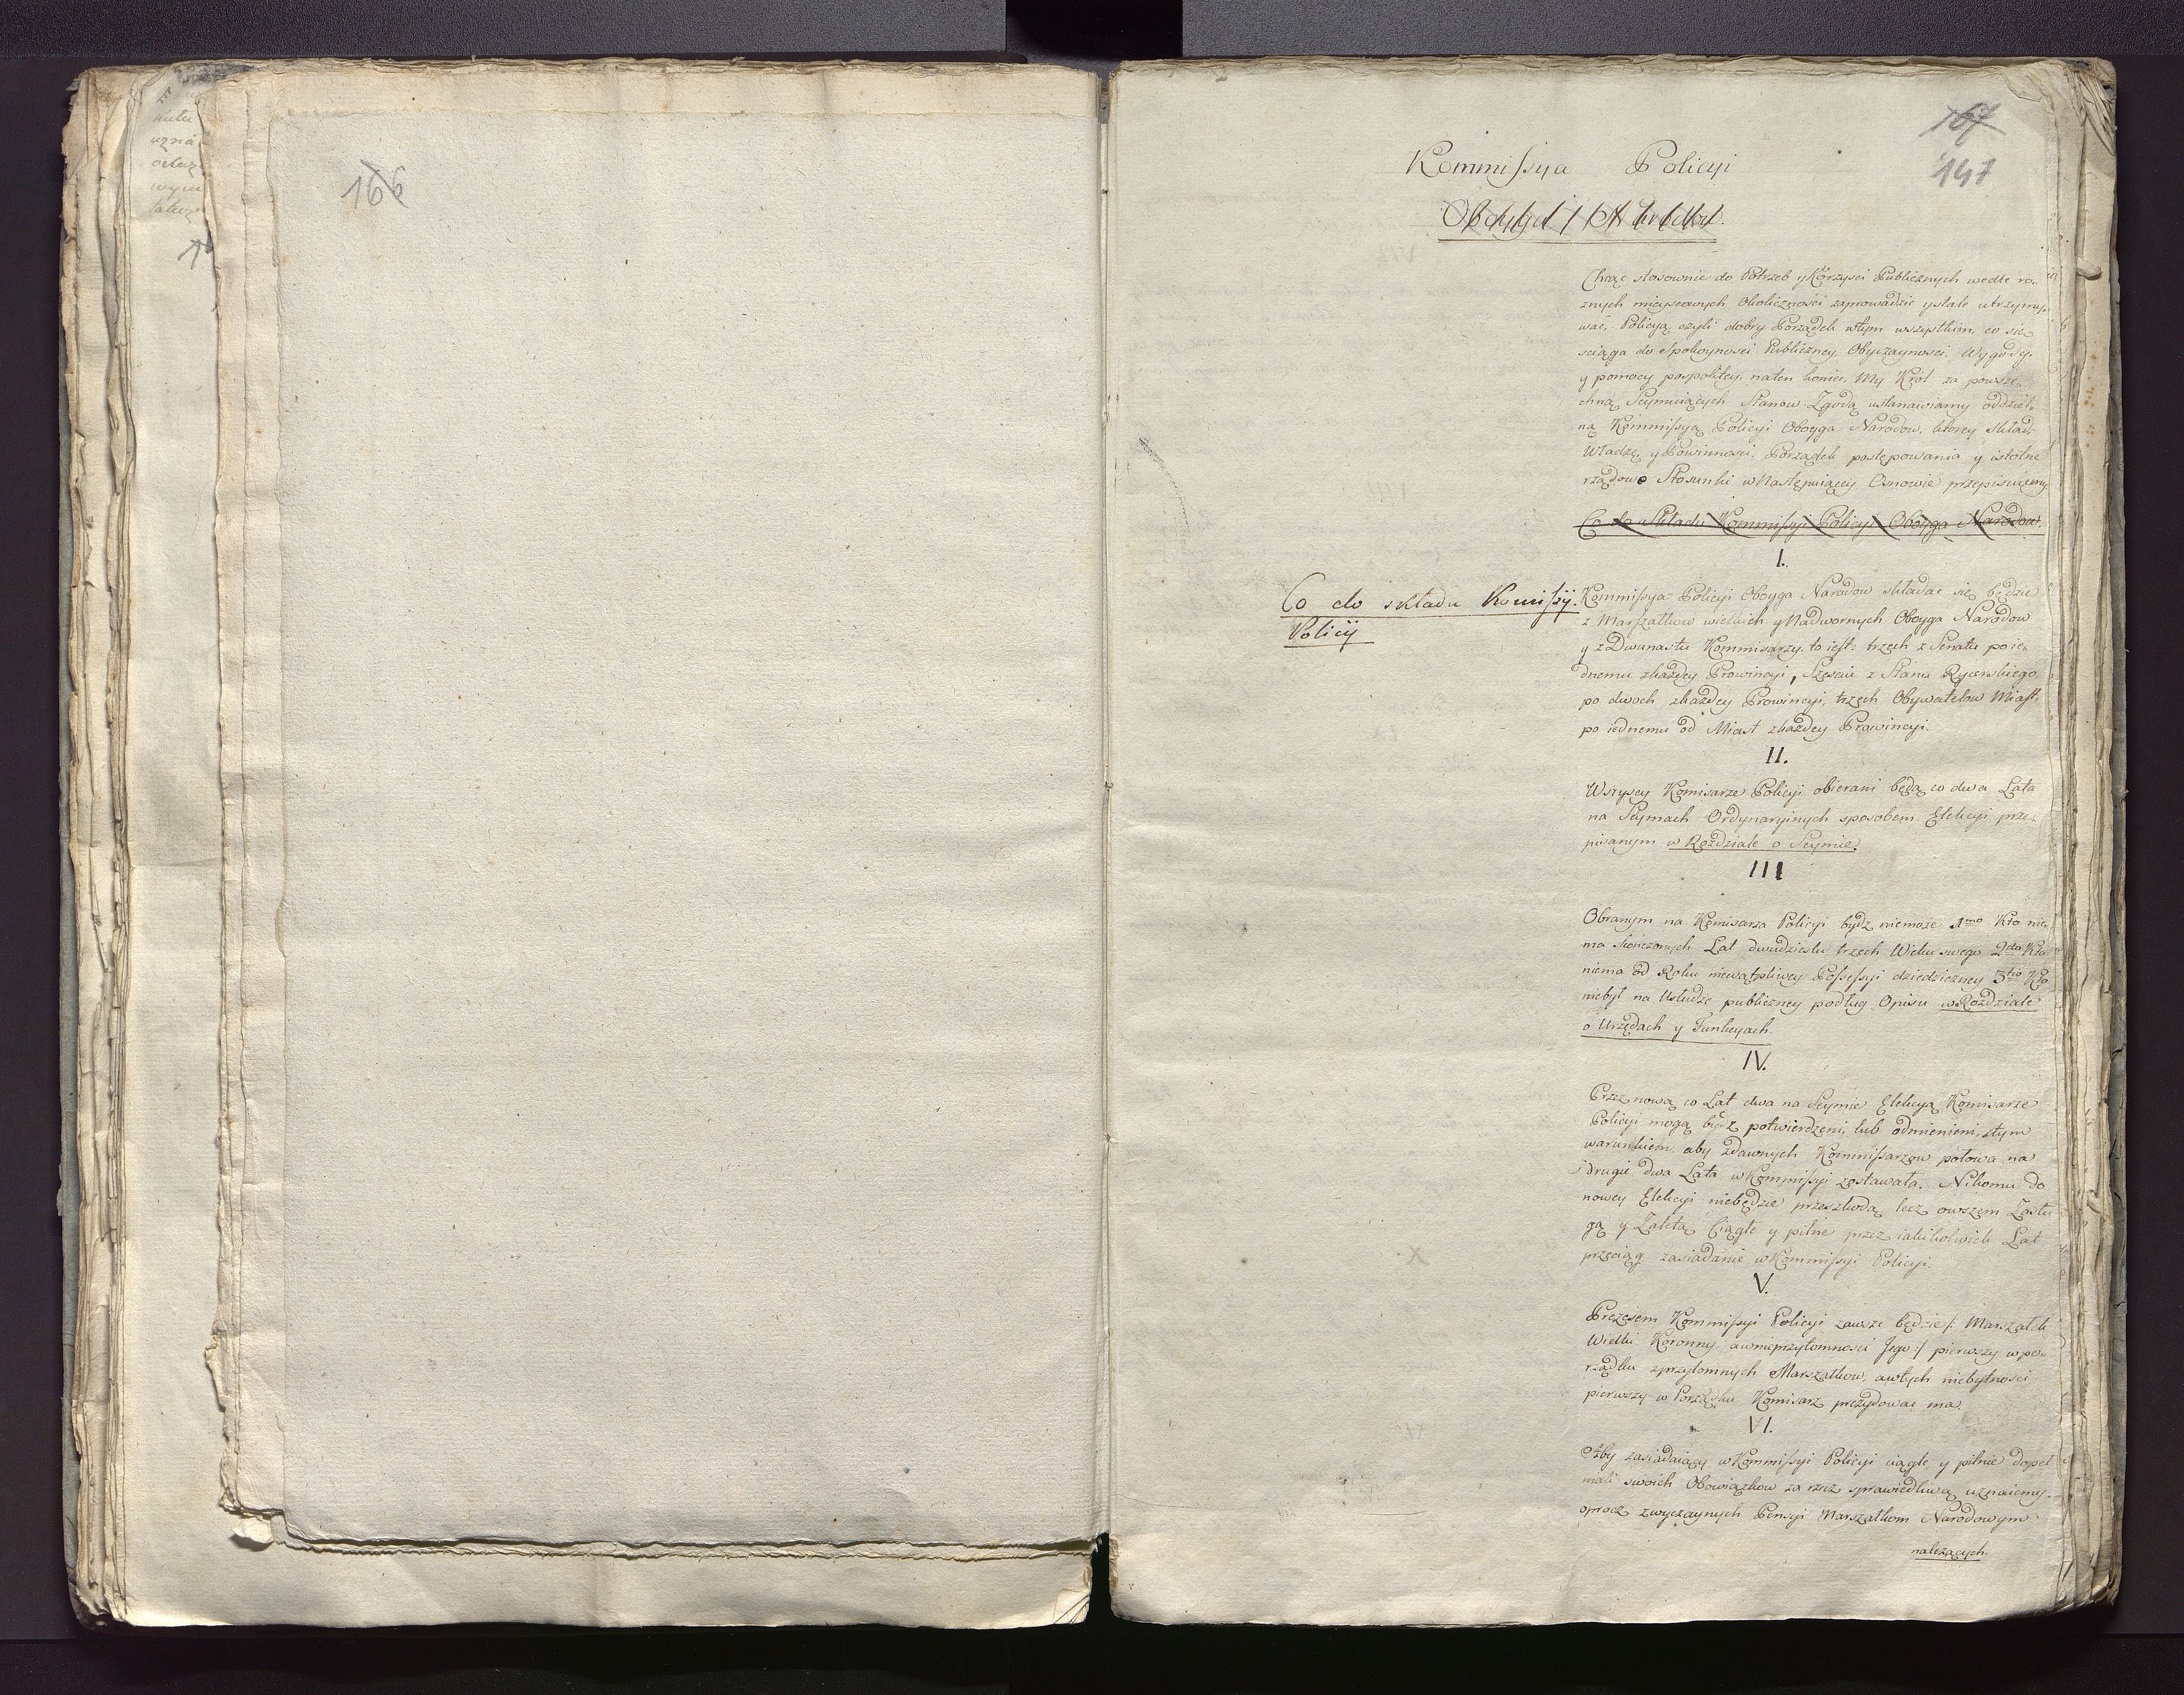 166
167
147
Kommissya Policyi
Oboyga Narodow.
Chcąc stosownie do Potrzeb y Korzysci Publicznych wedle ro-
znych mieyscowych Okolicznosci zaprowadzic y stale utrzymy-
wać, Policyą, czyli dobry Porządek w tym wszystkim, co się
sciąga do Spokoynosci Publiczney, Obyczaynosci, Wygody,
y pomocy pospolitey, na ten koniec, My Król za powsze-
chną Seymuiących Stanow Zgodą ustanawiamy oddziel-
ną Kommissyą Policyi Oboyga Narodow, ktorey Skład,
Władzę, y Powinnosci, Porządek postępowania y istotne
rządowe Stosunki w Następuiącey Osnowie przepisuiemy
Co do Składu Kommissyi Policyi Oboyga Narodow.
I.
Co do składu Komissyi
Policij
Kommissya Policyi Oboyga Narodow składac się będzie
z Marszałkow wielkich y Nadwornych Oboyga Narodow
y z Dwunastu Kommisarzy, to iest: trzech z Senatu po ie-
dnemu z każdey Prowincyi, Szesciu z Stanu Rycerskiego
po dwoch z każdey Prowincyi, trzech Obywatelow Miast,
po iednemu od Miast z każdey Prowincyi.
II.
Wszyscy Komisarze Policyi obierani będą co dwa Lata
na Seymach Ordynaryinych sposobem Elekcyi prze-
pisanym w Rozdziale o Seymie.
III
Obranym na Komisarza Policyi bydz niemoże 1mo Kto nie-
ma skończonych Lat dwudziestu trzech Wieku swego 2do Kto
niema od Roku niewątpliwey Possessyi dziedziczney 3tio Kto
niebył na Usłudze publiczney podług Opisu w Rozdziale
o Urzędach y Funkcyach.
IV.
Przez nową co Lat dwa na Seymie Elekcyą Komisarze
Policyi mogą bydz potwierdzeni, lub odmienieni, z tym
warunkiem aby z dawnych Kommissarzow połowa na
drugie dwa Lata w Kommissyi zostawała. Nikomu do
nowey Elekcyi niebędzie przeszkodą, lecz owszem Zasłu
gą y Zaletą Ciągłe y pilne przez iakikolwiek Lat
przeciąg zasiadanie w Kommissyi Policyi.
V.
Prezesem Kommissyi Policyi zawsze będzie /: Marszałek
Wielki Koronny, a w nieprzytomnosci Jego :/ pierwszy w po-
rządku z przytomnych Marszałkow, a w tych niebytnosci
pierwszy w Porządku Komisarz prezydować ma.
VI.
Aby zasiadaiący w Kommissyi Policyi ciągle, y pilnie dopeł
niali swoich Obowiązkow za rzecz sprawiedliwą uznaiemy,
oprocz zwyczaynych Pensyi Marszałkom Narodowym
należących.